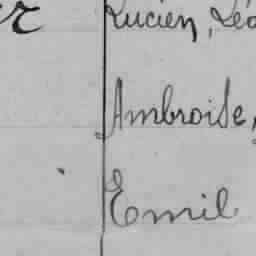 Lucien, Léo
Ambroise,
Emil